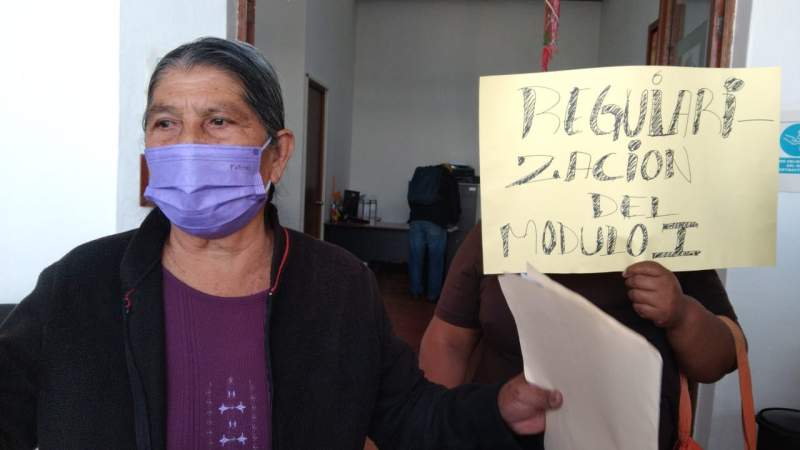 REGULARI-
ZACION
DEL
MODULO I